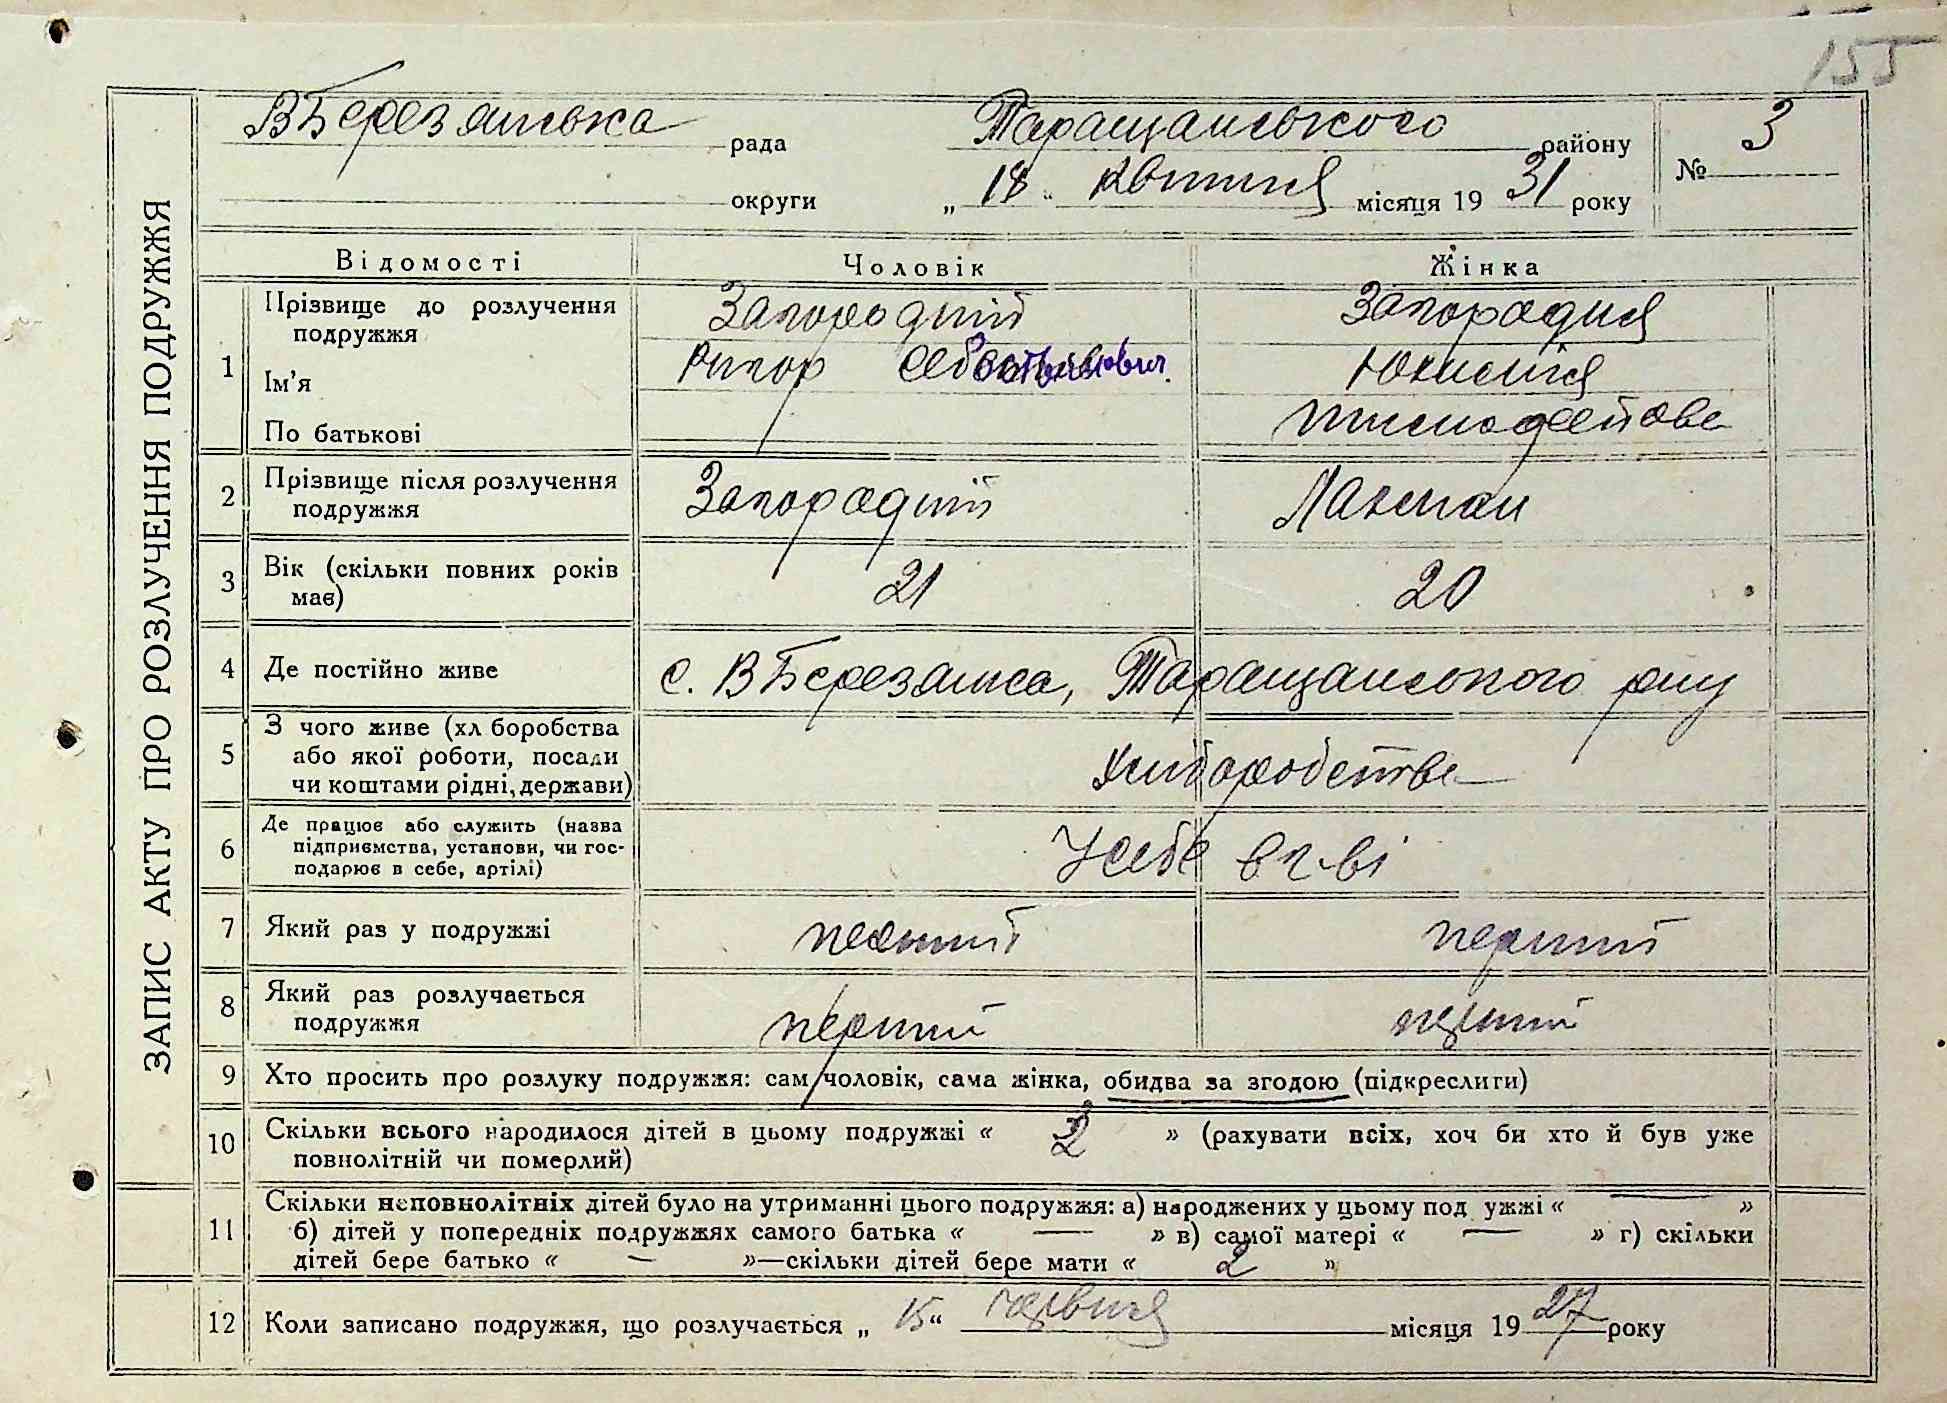 155
ЗАПИС АКТУ ПРО РОЗЛУЧЕННЯ ПОДРУЖЖЯ
ВБерезянська рада Таращанського району № 3
округи „ 18 " квітня місяця 19 31 року
Відомості Чоловік Жінка
1 Прізвище до розлучення подружжя Загородній Загородня
Ім'я
По батькові
2 Прізвище після розлучення подружжя Загородній Лахман
3 Вік (скільки повних років має) 21 20
4 Де постійно живе с. ВБерезянка, Таращанського р-ну
5 З чого живе (хл боробства або якої роботи, посади чи коштами рідні, держави) Хліборобства
6 Де працює або служить (назва підприємства, установи, чи господарює в себе, артілі) У себе в г-ві
7 Який раз у подружжі перший перший
8 Який раз розлучається подружжя перший перший
9 Хто просить про розлуку подружжя: сам чоловік, сама жінка, обидва за згодою (підкреслити)
10 Скільки всього народилося дітей в цьому подружжі « 2 » (рахувати всіх, хоч би хто й був уже
повнолітній чи померлий)
11 Скільки неповнолітніх дітей було на утриманні цього подружжя: а) народжених у цьому под ужжі « — »
б) дітей у попередніх подружжях самого батька « — » в) самої матері « — » г) скільки
дітей бере батько « — »—скільки дітей бере мати « 2 »
12 Коли записано подружжя, що розлучається „ 15 " червня місяця 19 27 року